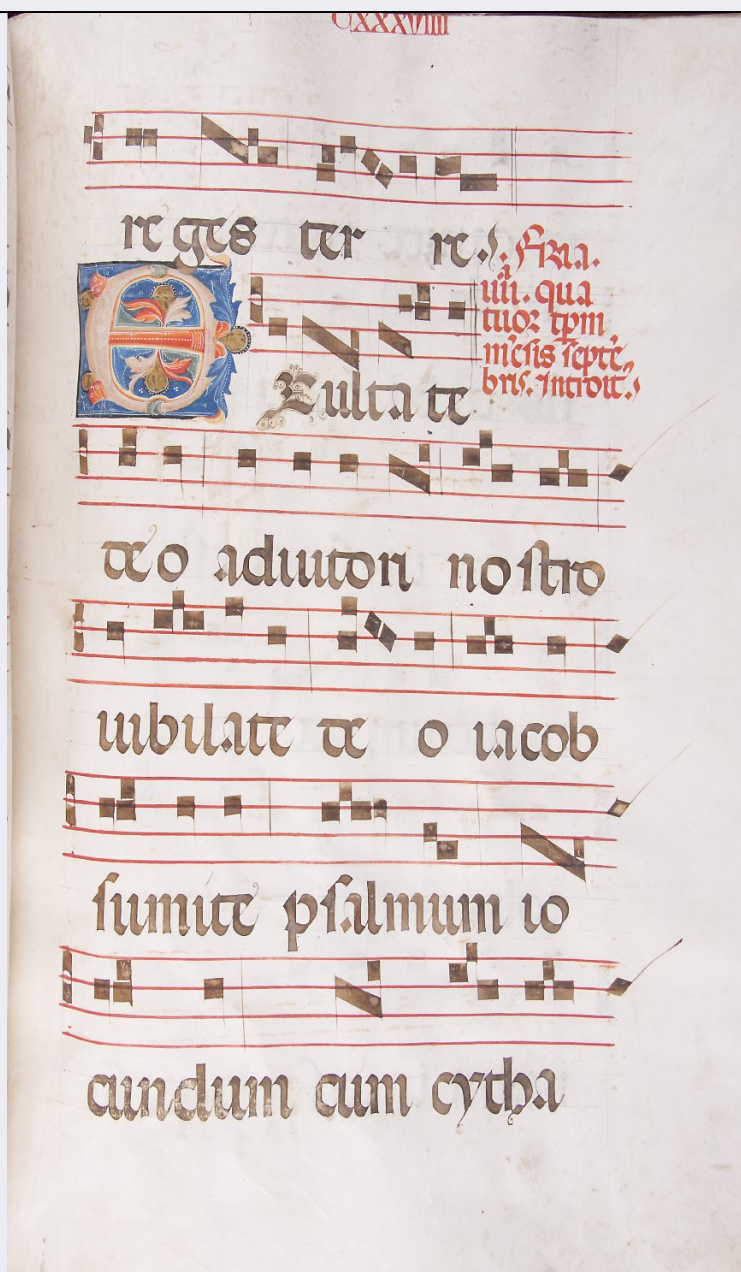 CXXXVIIII
re ges ter re.
FRIa.
a
iiii. qua
tuor tpm
mesis septe
bris. introit.
EXulta te
deo adiutori nostro
iubilate de o iacob
sumite psalmum io
cundum cum cytha